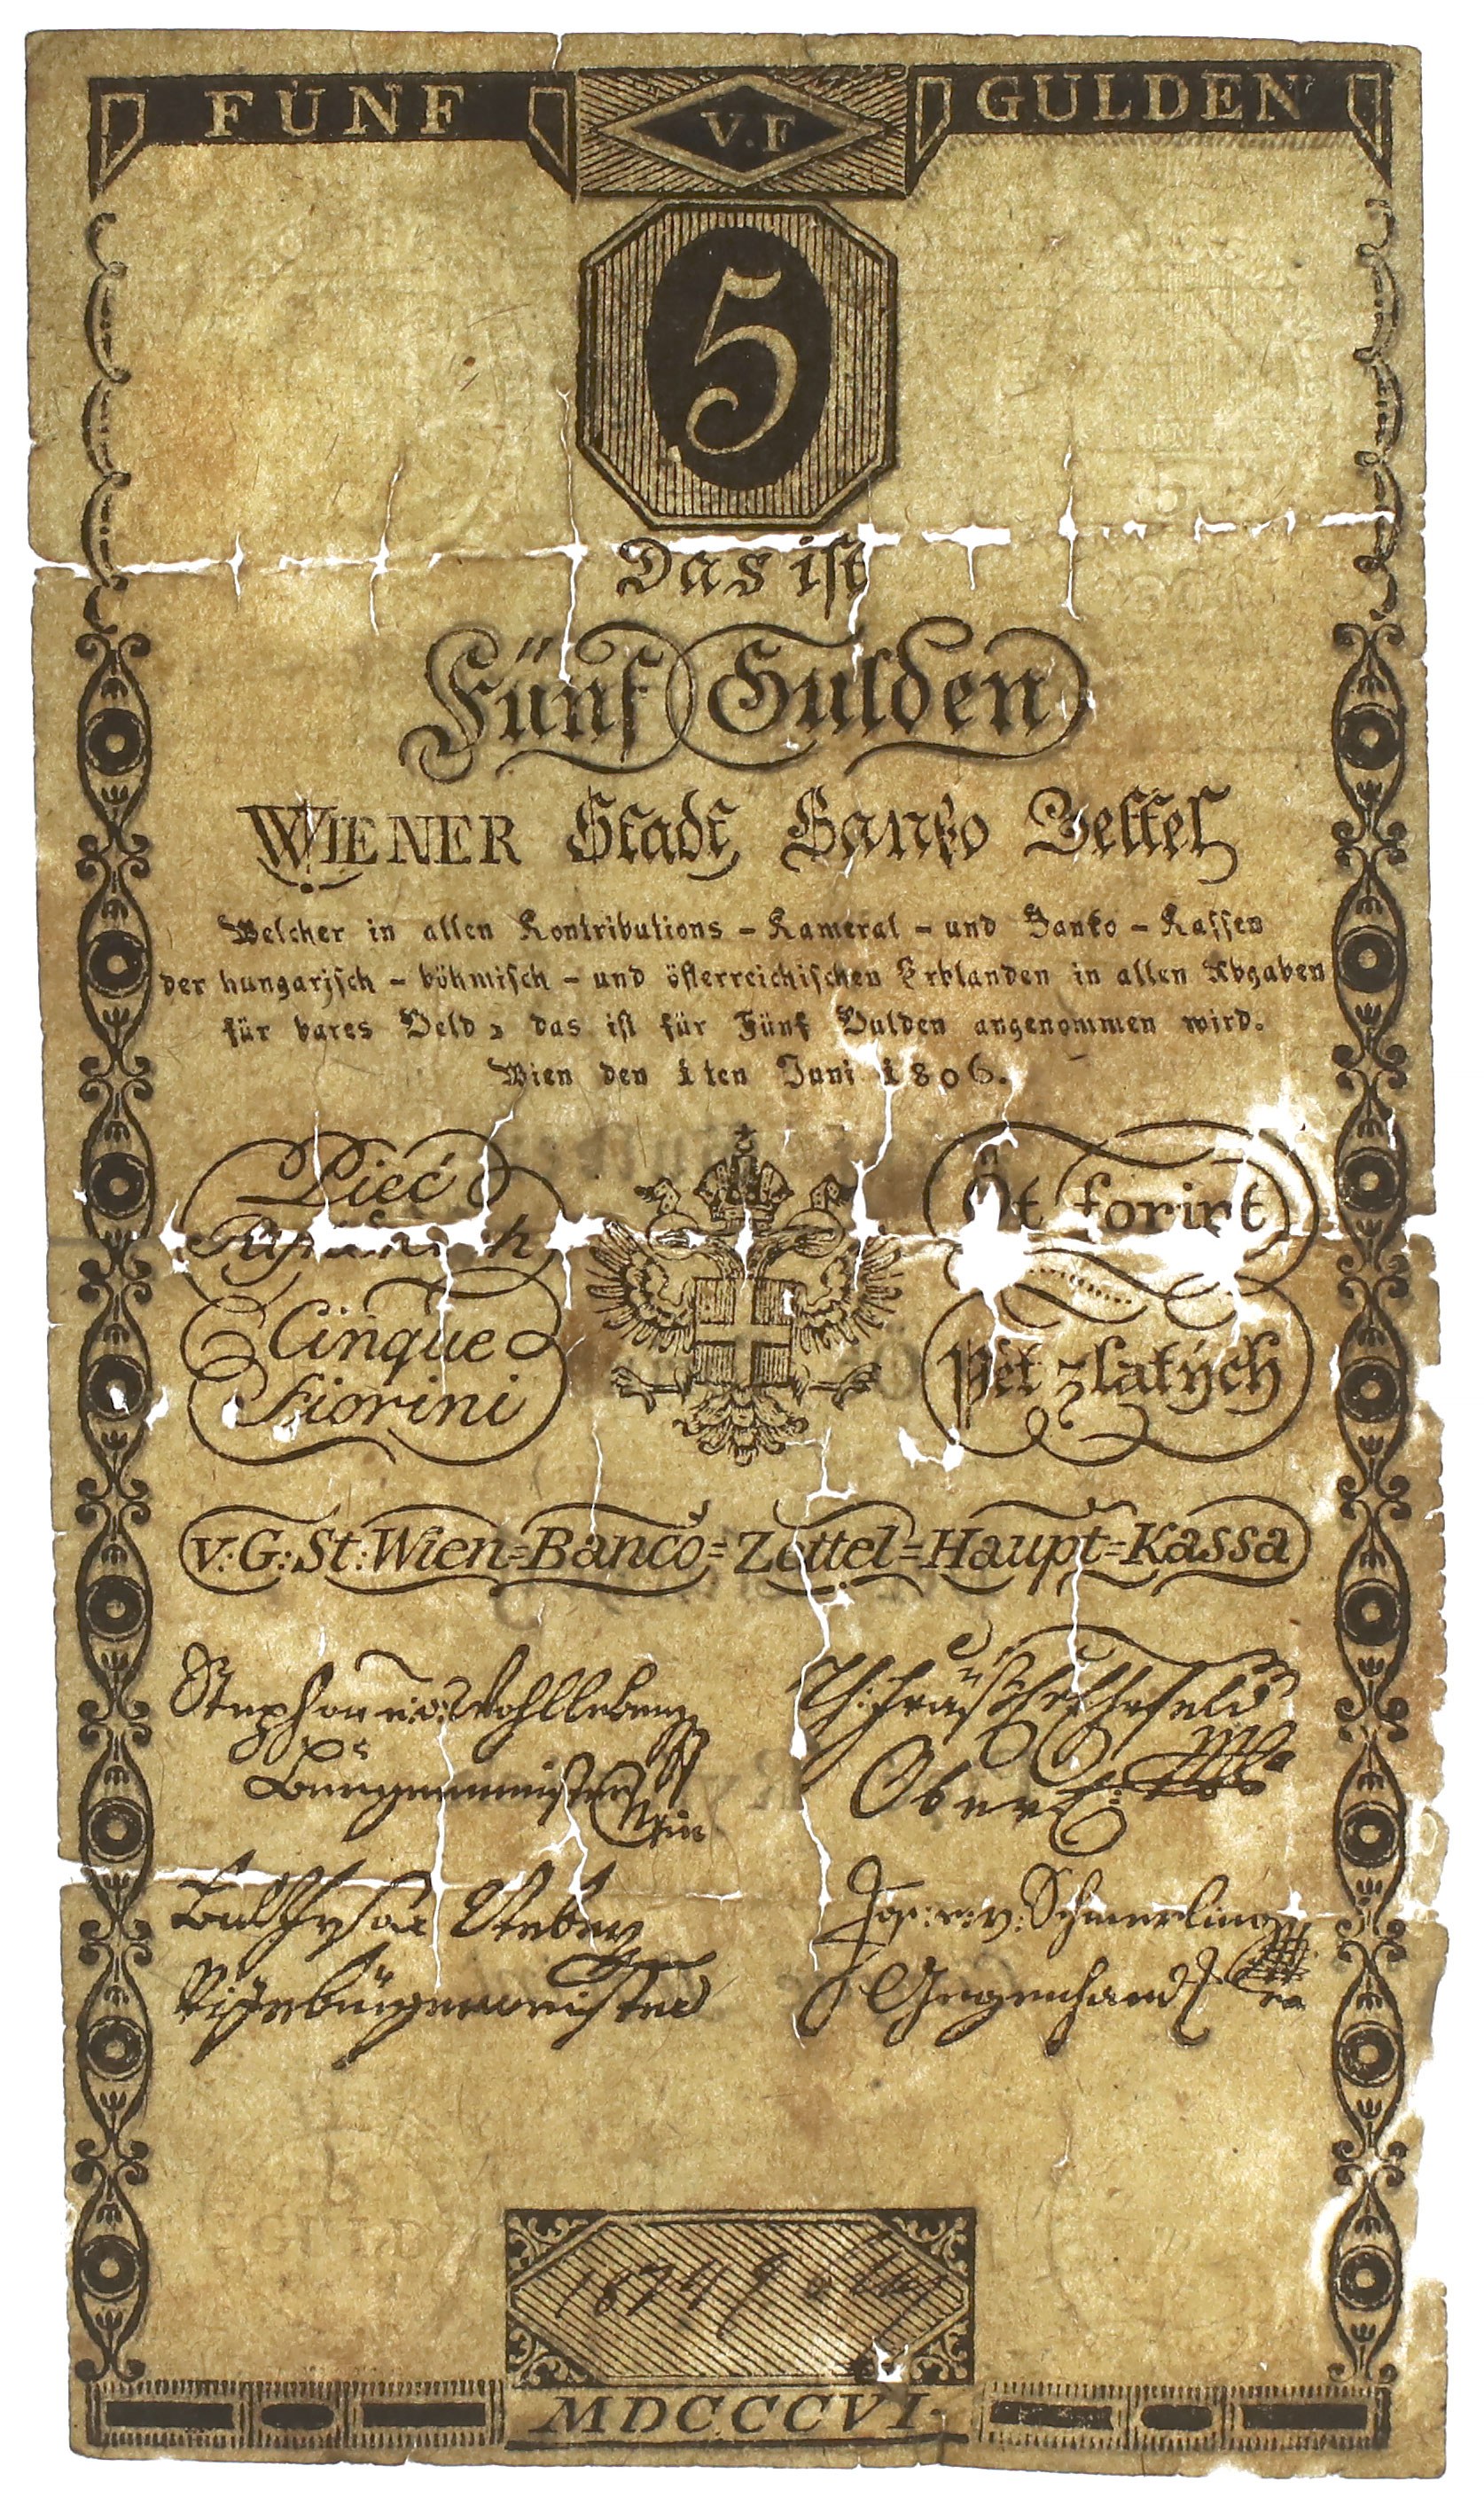 FÜNF V.F GULDEN
5
Das ist
Fünf Gulden
WIENER Stadt Banko Zettel
Welcher in allen Kontributions - Kameral - und Banko - Kassen
der hungarisch - böhmisch - und österreichischen Erblanden in allen Abgaben
für bares Geld, das ist für Fünf Gulden angenommen wird.
Wien den 1ten Juni 1806.
Pieć
Cinque
Fiorini
Öt forint
Pět zlatých
V:G:St:Wien=Banco=Zettel=Haupt=Kassa
Stephan v: Wohlleben
Burgermeister
Wien
Ober
Jos: v: Schmerling
Gegenhand
Vizebürgermeister
MDCCCVI.